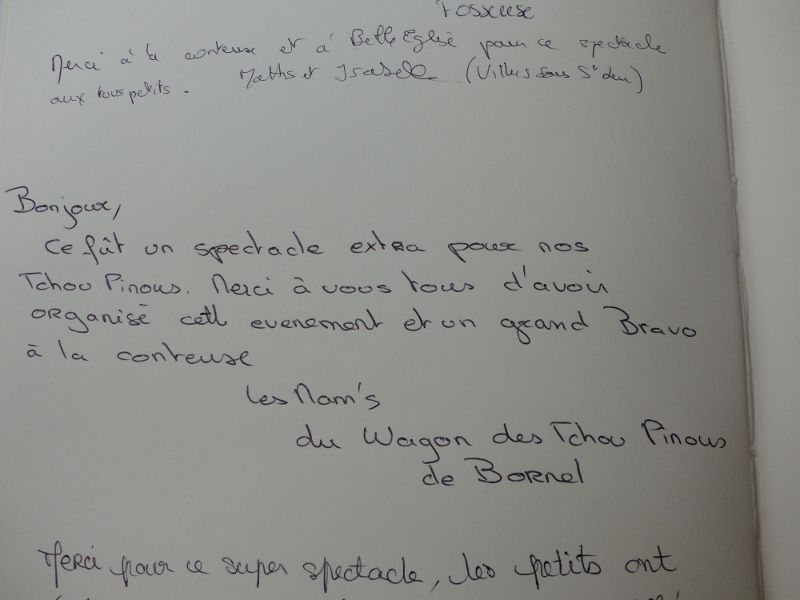 Fosseuse
Merci à la conteuse et à Belle Eglise pour ce spectacle
aux tous petits. Maths et Isabelle (Villers sous St Leu)
Bonjour,
Ce fût un spectacle extra pour nos
Tchou Pinous. Merci à vous tous d'avoir
organisé cett evenement et un grand Bravo
à la conteuse
les Mam's
du Wagon des Tchou Pinous
de Bornel
Merci pour ce super spectacle, les petits ont